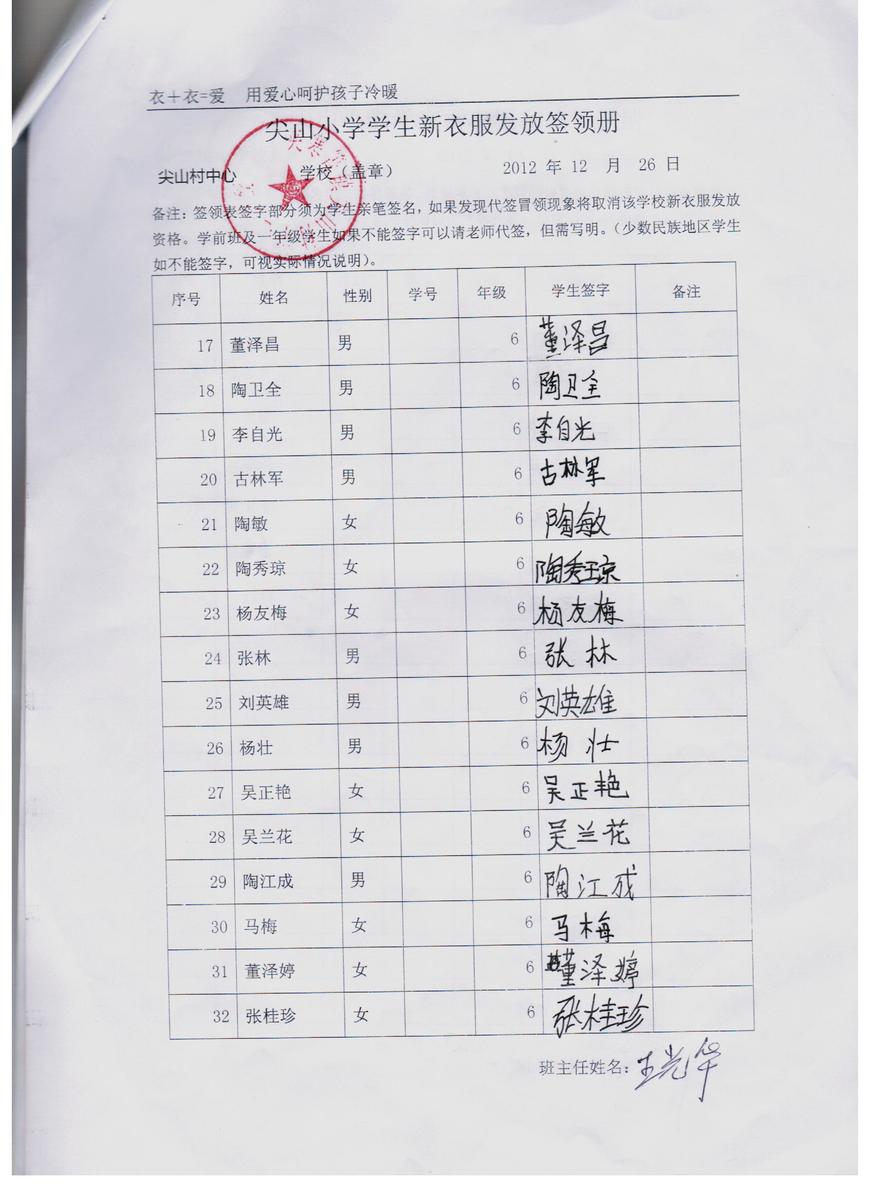 衣+衣=爱 用爱心呵护孩子冷暖
尖山小学学生新衣服发放签领册
尖山村中心 学校（盖章） 2012 年 12 月 26 日
备注：签领表签字部分须为学生亲笔签名，如果发现代签冒领现象将取消该学校新衣服发放
资格。学前班及一年级学生如果不能签字可以请老师代签，但需写明。（少数民族地区学生
如不能签字，可视实际情况说明）。
序号 姓名 性别 学号 年级 学生签字 备注
17 董泽昌 男 6 董泽昌
18 陶卫全 男 6 陶卫全
19 李自光 男 6 李自光
20 古林军 男 6 古林军
21 陶敏 女 6 陶敏
22 陶秀琼 女 6 陶秀琼
23 杨友梅 女 6 杨友梅
24 张林 男 6 张林
25 刘英雄 男 6 刘英雄
26 杨壮 男 6 杨壮
27 吴正艳 女 6 吴正艳
28 吴兰花 女 6 吴兰花
29 陶江成 男 6 陶江成
30 马梅 女 6 马梅
31 董泽婷 女 6 董泽婷
32 张桂珍 女 6 张桂珍
班主任姓名：王光华